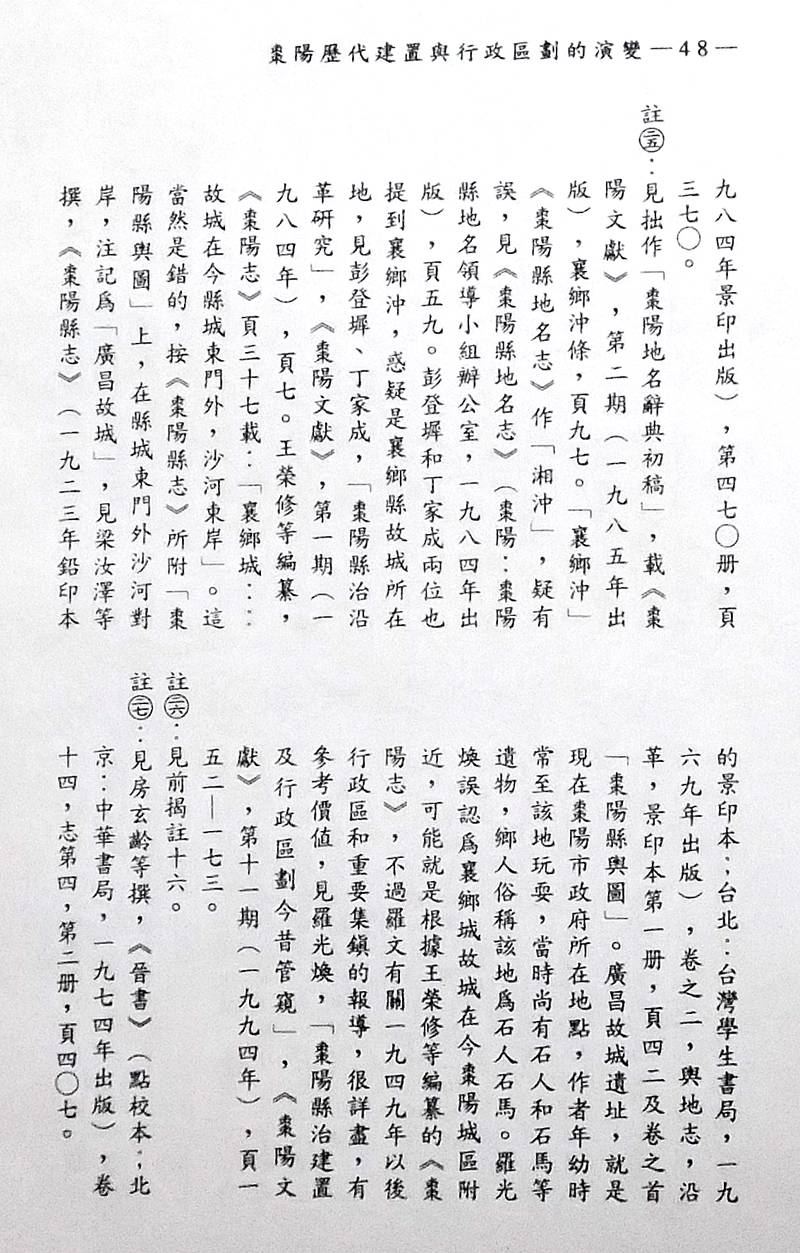 棗陽歷代建置與行政區劃的演變—48—
九八四年景印出版），第四七〇册，頁
三七〇。
註㉕：見拙作「棗陽地名辭典初稿」，載《棗
陽文獻》，第二期（一九八五年出
版），襄鄉沖條，頁九七。「襄鄉沖」
《棗陽縣地名志》作「湘沖」，疑有
誤，見《棗陽縣地名志》（棗陽：棗陽
縣地名領導小組辦公室，一九八四年出
版），頁五九。彭登墀和丁家成兩位也
提到襄鄉沖，惑疑是襄鄉縣故城所在
地，見彭登墀、丁家成，「棗陽縣治沿
革研究」，《棗陽文獻》，第一期（一
九八四年），頁七。王榮修等編纂，
《棗陽志》頁三十七載：「襄鄉城：：
故城在今縣城東門外，沙河東岸」。這
當然是錯的，按《棗陽縣志》所附「棗
陽縣輿圖」上，在縣城東門外沙河對
岸，注記爲「廣昌故城」，見梁汝澤等
撰，《棗陽縣志》（一九二三年鉛印本
的景印本；台北：台灣學生書局，一九
六九年出版），卷之二，輿地志，沿
革，景印本第一册，頁四二及卷之首
「棗陽縣輿圖」。廣昌故城遺址，就是
現在棗陽市政府所在地點，作者年幼時
常至該地玩耍，當時尚有石人和石馬等
遺物，鄉人俗稱該地爲石人石馬。羅光
煥誤認爲襄鄉城故城在今棗陽城區附
近，可能就是根據王榮修等編纂的《棗
陽志》，不過羅文有關一九四九年以後
行政區和重要集鎮的報導，很詳盡，有
參考價值，見羅光煥，「棗陽縣治建置
及行政區劃今昔管窺」，《棗陽文
獻》，第十一期（一九九四年），頁一
五二—一七三。
註㉖：見前揭註十六。
註㉗：見房玄齡等撰，《晉書》（點校本；北
京：中華書局，一九七四年出版），卷
十四，志第四，第二册，頁四〇七。